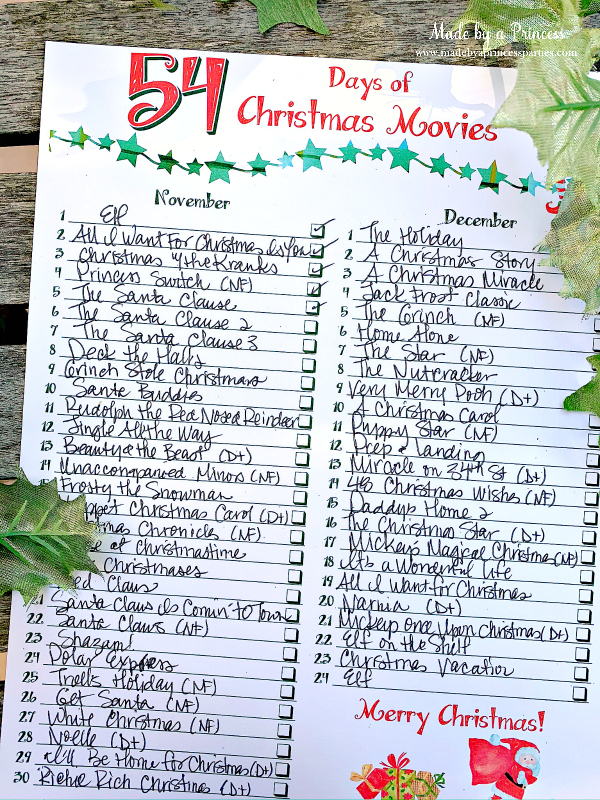 Made by a Princess
www.madebyaprincessparties.com
54 Days of
Christmas Movies
November
1 Elf
2 All I Want For Christmas Is You
3 Christmas w/ the Kranks
4 Princess Switch (NF)
5 The Santa Clause
6 The Santa Clause 2
7 The Santa Clause 3
8 Deck the Halls
9 Grinch Stole Christmas
10 Santa Buddies
11 Rudolph the Red Nosed Reindeer
12 Jingle All the Way
13 Beauty & the Beast (D+)
14 Unaccompanied Minors (NF)
Frosty the Snowman
Christmas Carol (D+)
Chronicles (NF)
at Christmastime
Christmases
Claus
21 Santa Claus Is Comin' To Town
22 Santa Claws (NF)
23 Shazam!
24 Polar Express
25 Trolls Holiday (NF)
26 Get Santa (NF)
27 White Christmas (NF)
28 Noelle (D+)
29 I'll Be Home for Christmas (D+)
30 Richie Rich Christmas (D+)
December
1 The Holiday
2 A Christmas Story
3 A Christmas Miracle
4 Jack Frost Classic
5 The Grinch (NF)
6 Home Alone
7 The Star (NF)
8 The Nutcracker
9 Very Merry Pooh (D+)
10 A Christmas Carol
11 Puppy Star (NF)
12 Prep & Landing
13 Miracle on 34th St (D+)
14 48 Christmas Wishes (NF)
15 Daddy's Home 2
16 The Christmas Star (D+)
17 Mickey's Magical Christmas (NF)
18 It's a Wonderful Life
19 All I Want for Christmas
20 Narnia (D+)
21 Mickey Once Upon Christmas (D+)
22 Elf on the Shelf
23 Christmas Vacation
24 Elf
Merry Christmas!